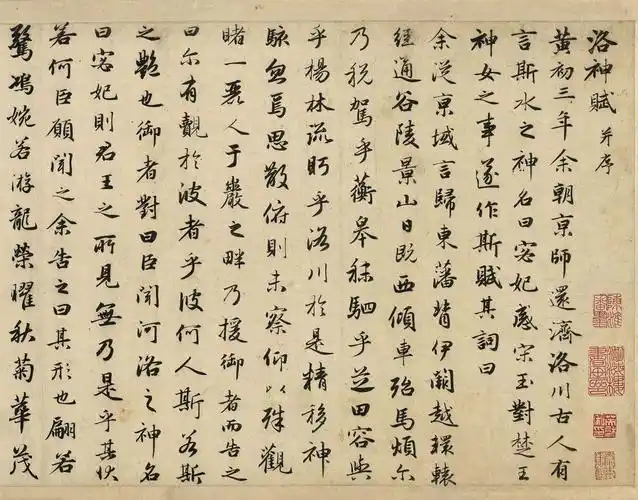 洛神賦 并序
黃初三年余朝京師還濟洛川古人有
言斯水之神名曰宓妃感宋玉對楚王
神女之事遂作斯賦其詞曰
余從京域言歸東藩背伊闕越轘轅
經通谷陵景山日既西傾車殆馬煩尔
乃稅駕乎蘅皋秣駟乎芝田容與
乎楊林流眄乎洛川於是精移神
駭忽焉思散俯則未察仰以殊觀
睹一麗人于巖之畔乃援御者而告之
曰尔有觀於彼者乎彼何人斯若斯
之艷也御者對曰臣聞河洛之神名
曰宓妃則君王之所見無乃是乎其狀
若何臣願聞之余告之曰其形也翩若
驚鴻婉若游龍榮曜秋菊華茂